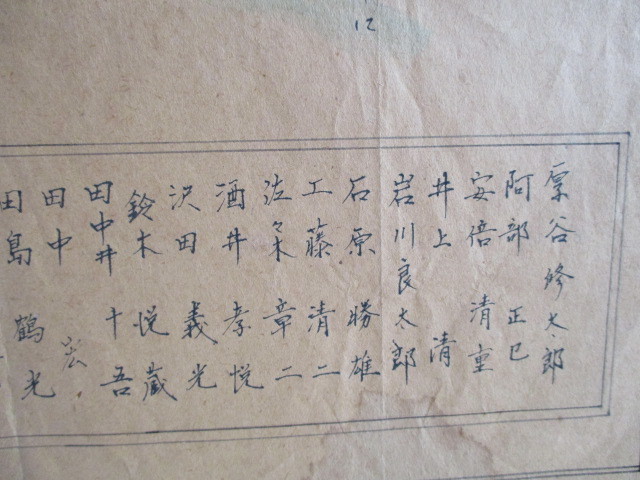 12
厚谷修太郎
阿部正巳
安倍清重
井上清
岩川良太郎
石原勝雄
工藤清二
佐々木章二
酒井孝悦
沢田義光
鈴木悦蔵
田中井十吾
田中宏
田島鶴光